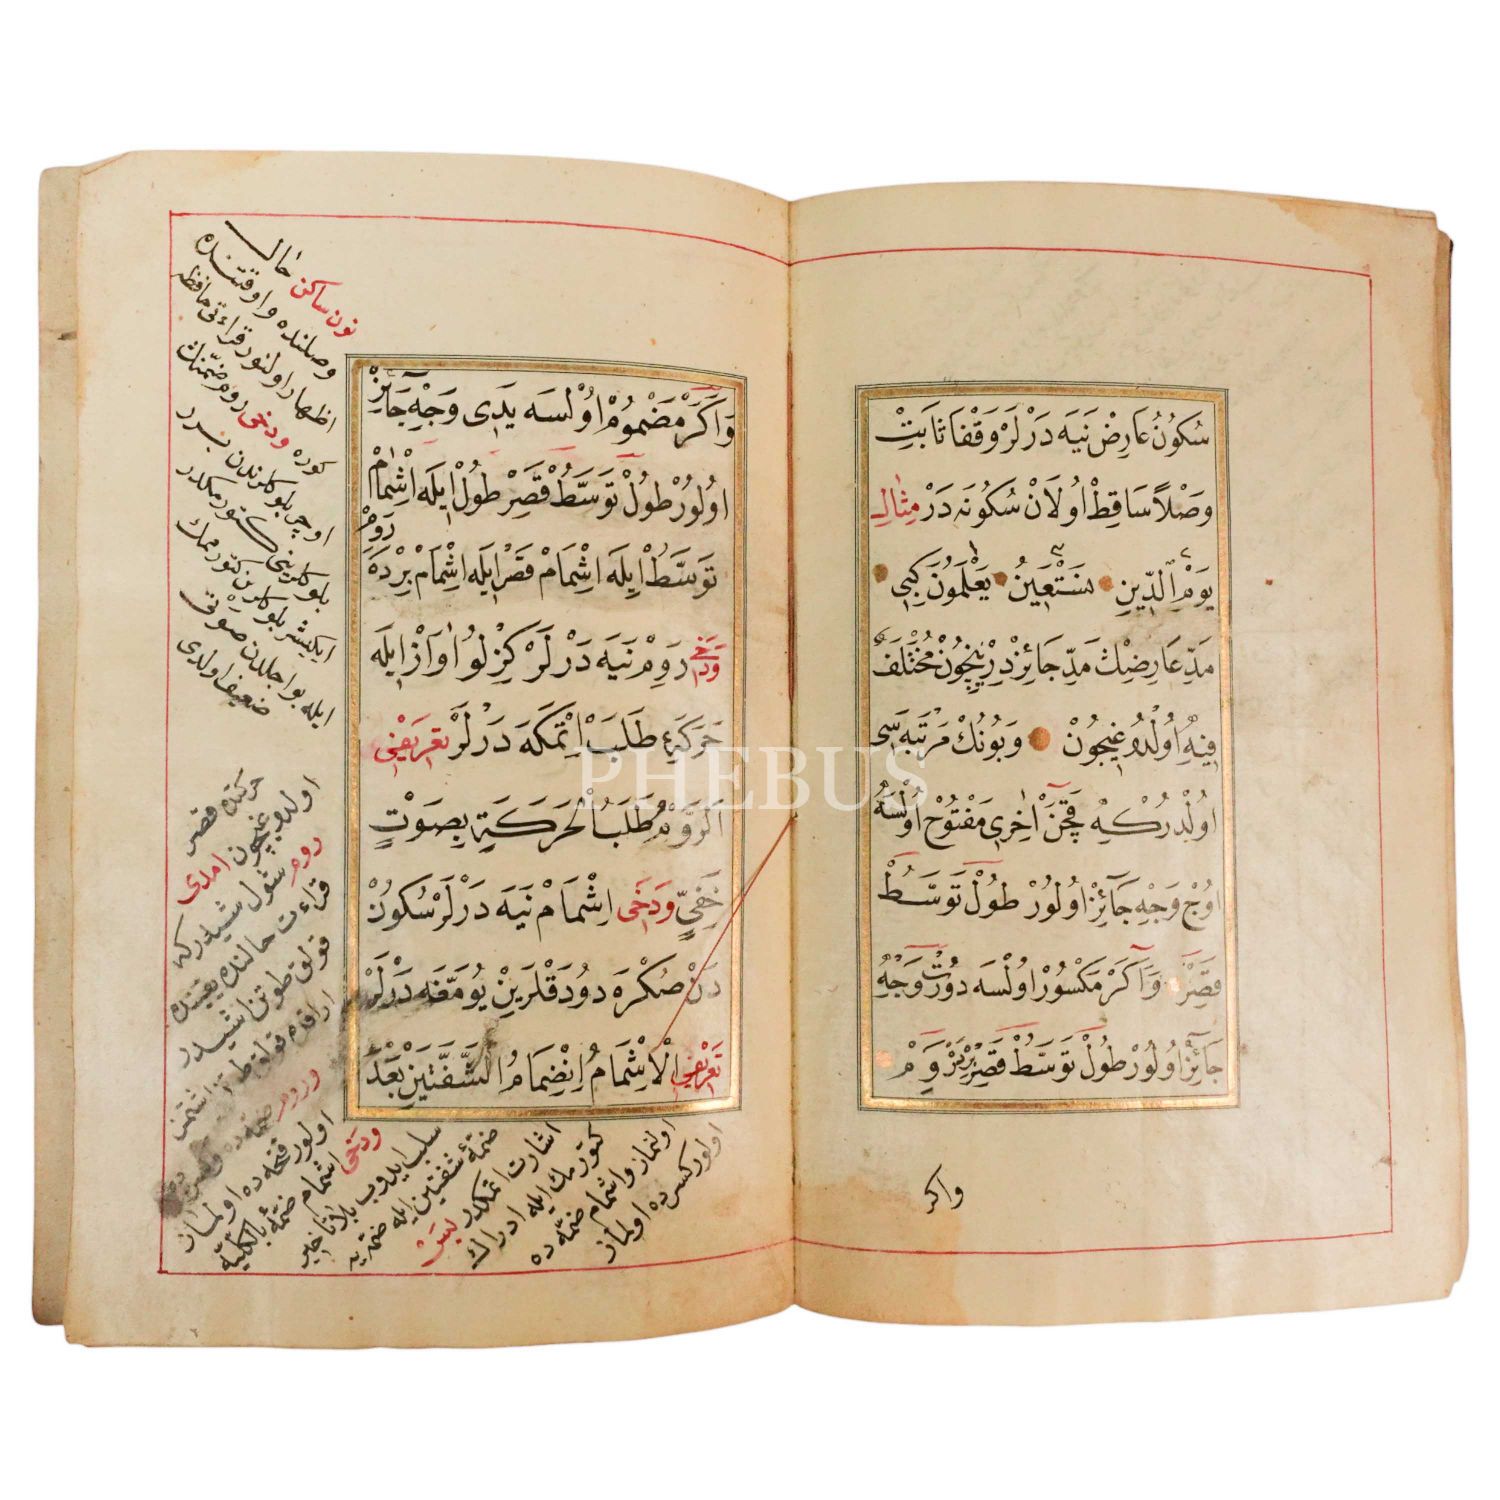 سُكُونُ عَارِضْ نَيَه دَرْلَرْ وَقْفًا ثَابِتْ
وَصْلاً سَاقِطْ اُولَانْ سُكُونَه دَرْ مِثَالِ
يَوْمِ الدِّينِ نَسْتَعِينُ يَعْلَمُونَ كِبِى
مَدِّ عَارِضِڭ مَدِّ جَائِزْ دِرْ نِچُونْ مُخْتَلَفٌ
فِيهِ اُولْدُوغِيچُونْ وَبُونُكْ مَرْتَبَه سِى
اُولْدُرْكِه قَچَنْ اٰخِرِى مَفْتُوحْ اُولْسَه
اُوچْ وَجْهِ جَآئِزْ اُولُورْ طُولْ تَوَسُّطْ
قَصِرْ وَاَكَرْ مَكْسُورْ اُولْسَه دُورْتْ وَجْهِ
جَآئِزْ اُولُورْ طُولْ تَوَسُّطْ قَصِرْ بِرْ رَوِمْ
واكر
وَاَكَرْ مَضْمُومْ اُولْسَه يَدِى وَجْهِ جَآئِزْ
اُولُورْ طُولْ تَوَسُّطْ قَصِرْ طُولْ اِيلَه اِشْمَامْ
تَوَسُّطْ اِيلَه اِشْمَامْ قَصْرْ اِيلَه اِشْمَامْ بِرْدَه رَوِمْ
وَدَخِى رَوِمْ نَيَه دَرْلَرْ كِزْلُو اٰوَازْ اِيلَه
حَرَكَهِ طَلَبْ اِتْمَكَه دَرْلَرْ تَعْرِيفِى
اَلرَّوْمُ طَلَبُ الْحَرَكَةِ بِصَوْتٍ
خَفِيٍّ وَدَخِى اِشْمَامْ نَيَه دَرْلَرْ سُكُونْ
دَنْ صُكْرَه دُودَقْلَرِينْ يُومَغَه دَرْلَرْ
تَعْرِيفِى اَلْاِشْمَامُ اِنْضِمَامُ الشَّفَتَيْنِ بَعْدَ
نون ساكن حال
وصلنده واوقتنده
اظهار اولنور قراءتى حافظه
كوره ودخى روم ضمّنڭ
ايله بو اجلدن صوتى
ضعيف اولدى
حركتده قصر
اولدوغيچون امدى
روم شول شيدركه
قراءت حالنده يقينده
ودخى اشمام ضمّهٔ بالكليّه
سلب ايدوب بلا تأخير
ضمّهٔ شفتين ايله ضمّه يه
اشارت اتمكدر پس
كتورمك ايله ادراك
اولنماز واشمام ضمّه ده
اولور كسرده اولماز
PHEBUS